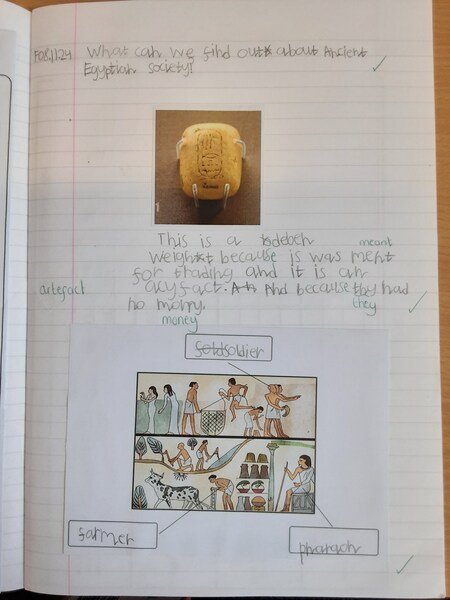 F08.11.24 What can we find out about Ancient
Egyptian society?
1
This is a deben
meant
weight because is was ment
for trading and it is an
artefact
acyfact. And because thy had
they
no mony.
money
soldier
farmer
pharaoh